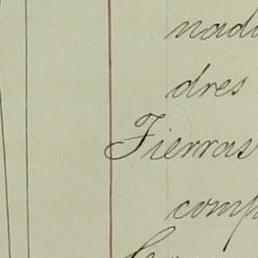 nadu
dres
Tierras
comp